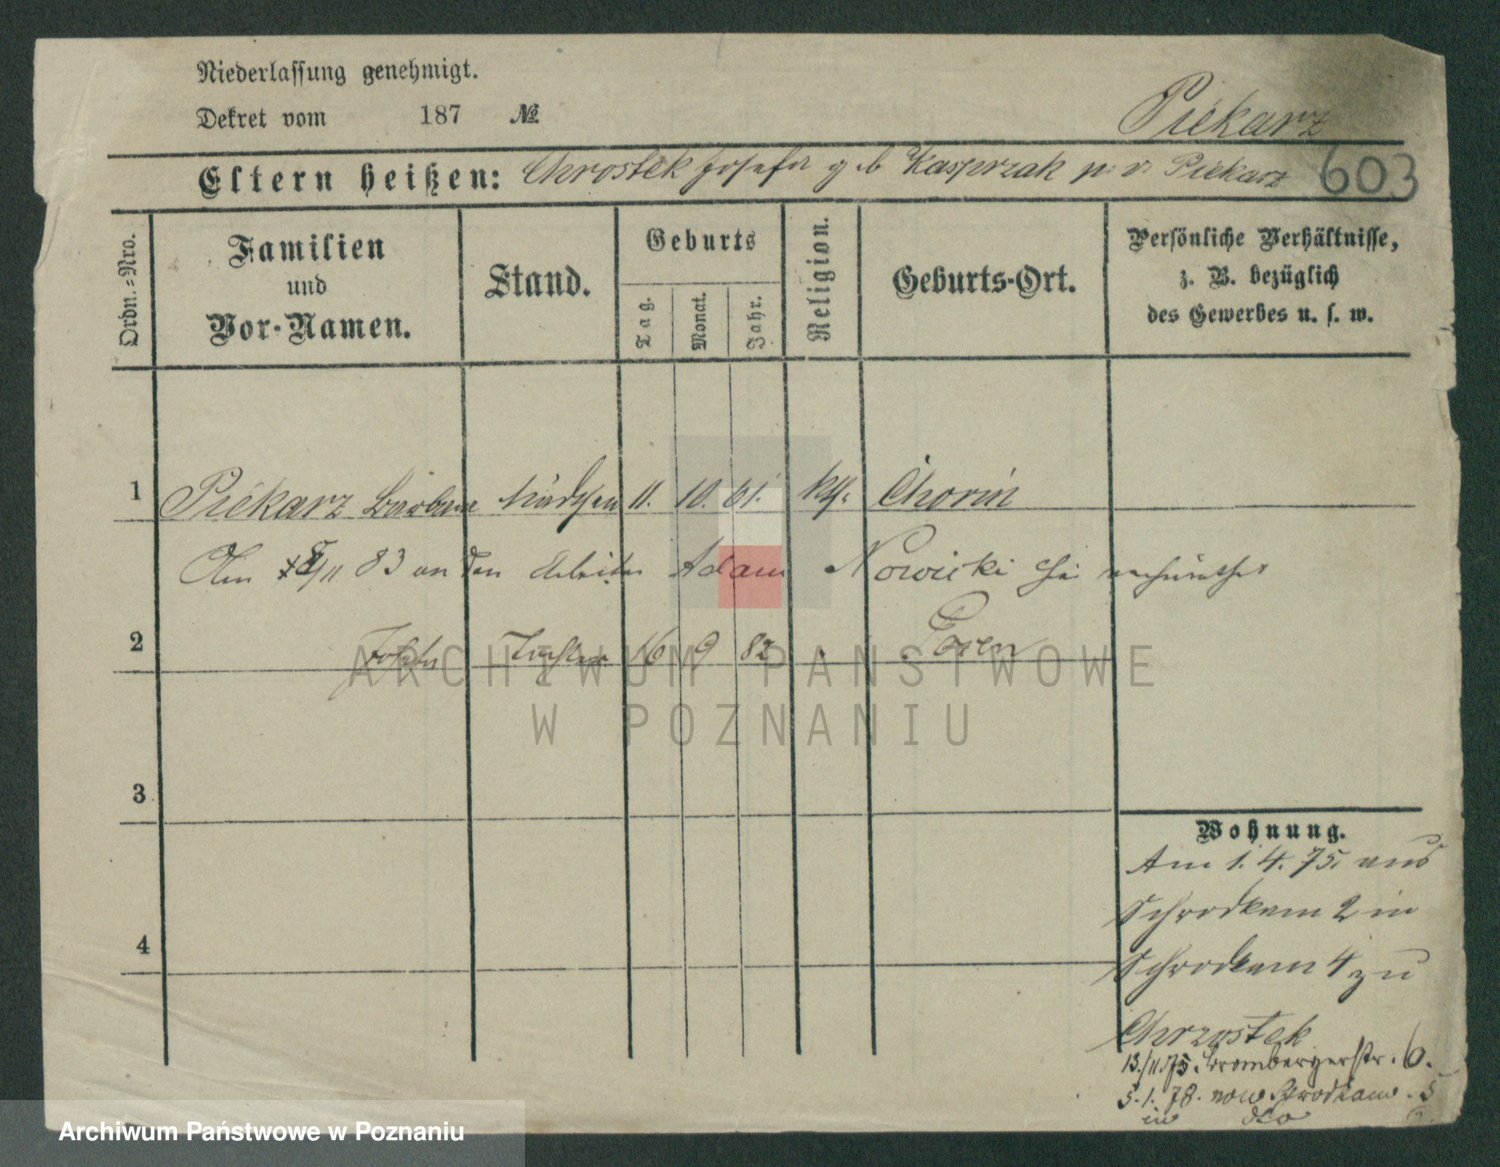 Niederlassung genehmigt.
Dekret vom 187 №
Piekarz
Eltern heißen: Chrostek Josefa geb Kasprzak p. v. Piekarz
603
Ordn.-Nro.
Familien und Vor-Namen.
Stand.
Geburts
Tag.
Monat.
Jahr.
Religion.
Geburts-Ort.
Persönliche Verhältnisse,
z. B. bezüglich
des Gewerbes u. s. w.
1 Piekarz Barbara Mädchen 11. 10. 61. kth. Chorin
Am 83 an den Arbeiter Adam Nowicki verheirathet
2 Tochter 16 9 82 Posen
3
4
Wohnung.
Am 1. 4. 75. aus
Schrodkam 2 in
Schrodkam 4 zu
Chrzostek
13./11. 75. Brombergerstr. 6.
5. 1. 78. von Schrodkam. 5
in dto
ARCHIWUM PAŃSTWOWE
W POZNANIU
Archiwum Państwowe w Poznaniu